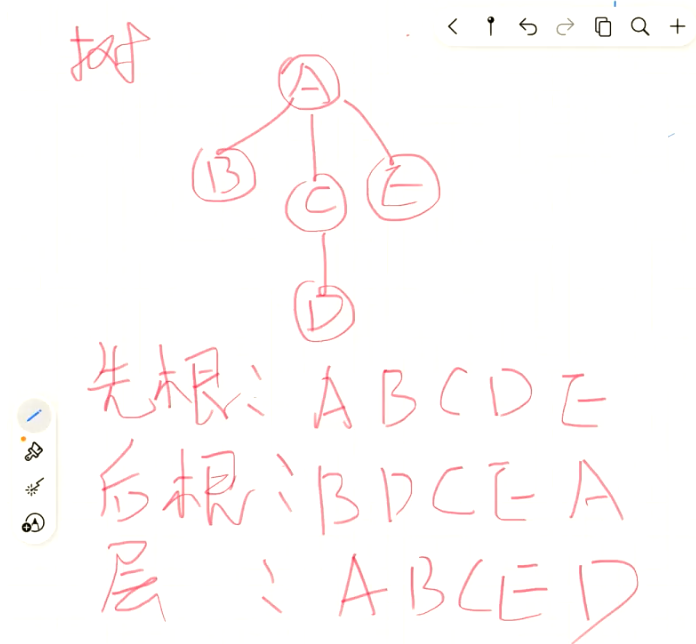 树
A
B
C
E
D
先根: A B C D E
后根: B D C E A
层 : A B C E D